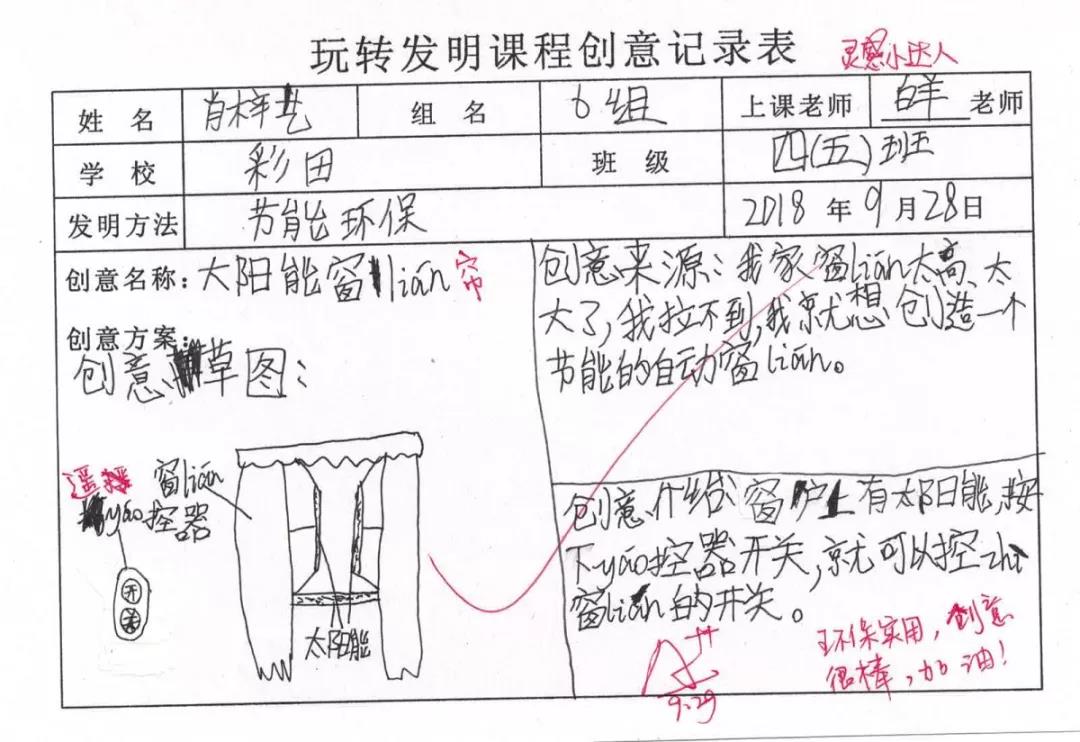 玩转发明课程创意记录表
灵感小达人
姓 名 肖梓艺 组 名 6组 上课老师 白羊 老师
学 校 彩田 班 级 四(五)班
发明方法 节能环保 2018 年 9 月 28 日
创意名称：太阳能窗lián 帘
创意方案：
创意草图：
遥
窗lián
yáo控器
开
关
太阳能
创意来源：我家窗lián太高、太
大了，我拉不到，我就想创造一个
节能的自动窗lián。
创意介绍：窗户上有太阳能，按
下yáo控器开关，就可以控zhì
窗lián的开关。
A++
9.29
环保实用，创意
很棒，加油！